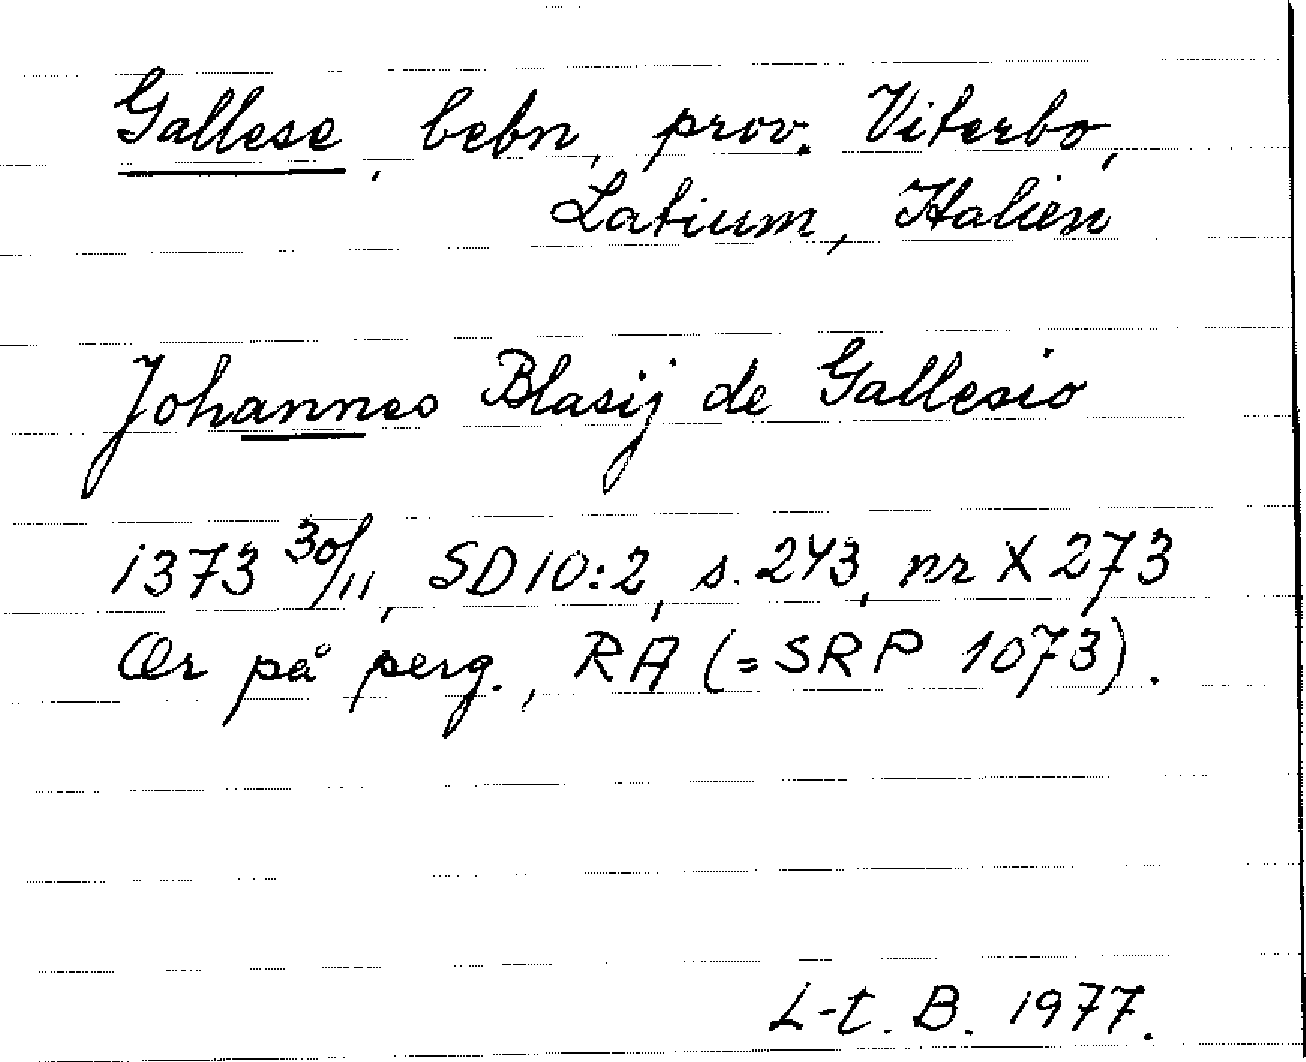 Gallese, bebn, prov. Viterbo,
Latium, Italien
Johannes Blasij de Gallesio
1373 30/11, SD 10:2, s. 243, nr X 273
Or på perg., RA (= SRP 1073).
L-t. B. 1977.